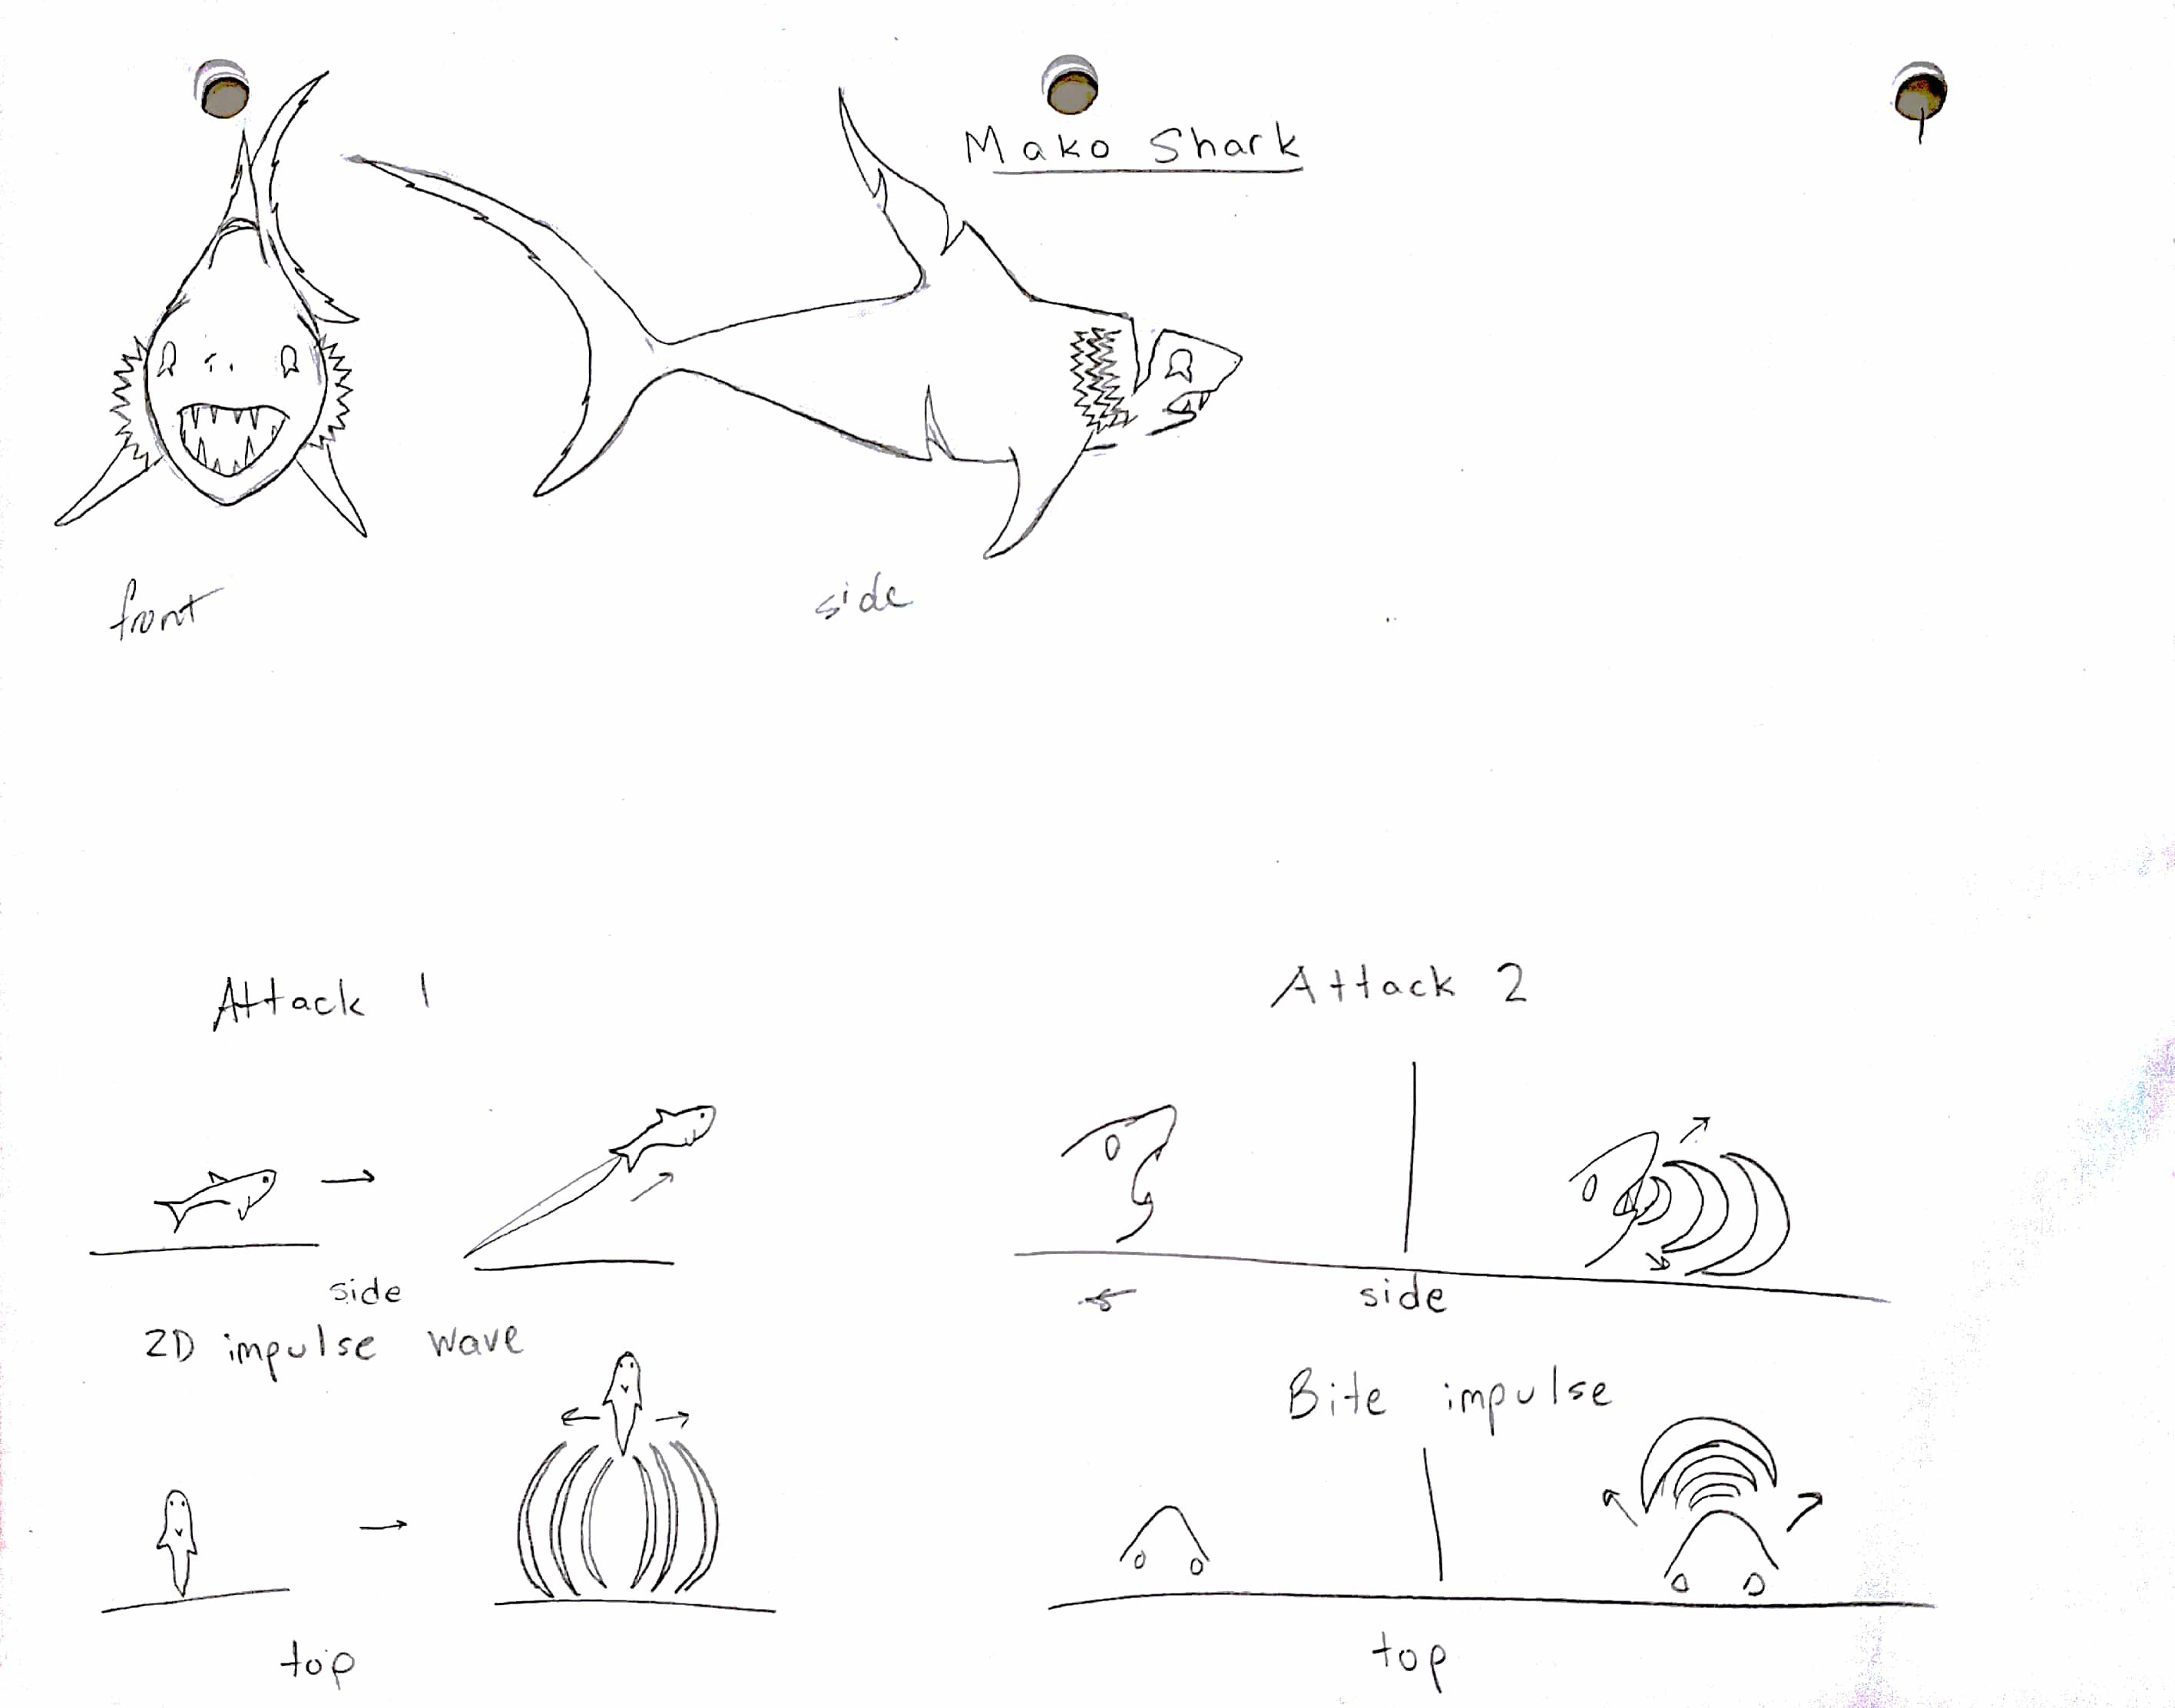 Mako Shark
front
side
Attack 1
side
2D impulse wave
top
Attack 2
side
Bite impulse
top